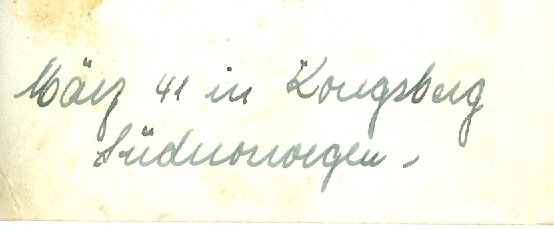 März 41 in Kongsberg
Südnorwegen.